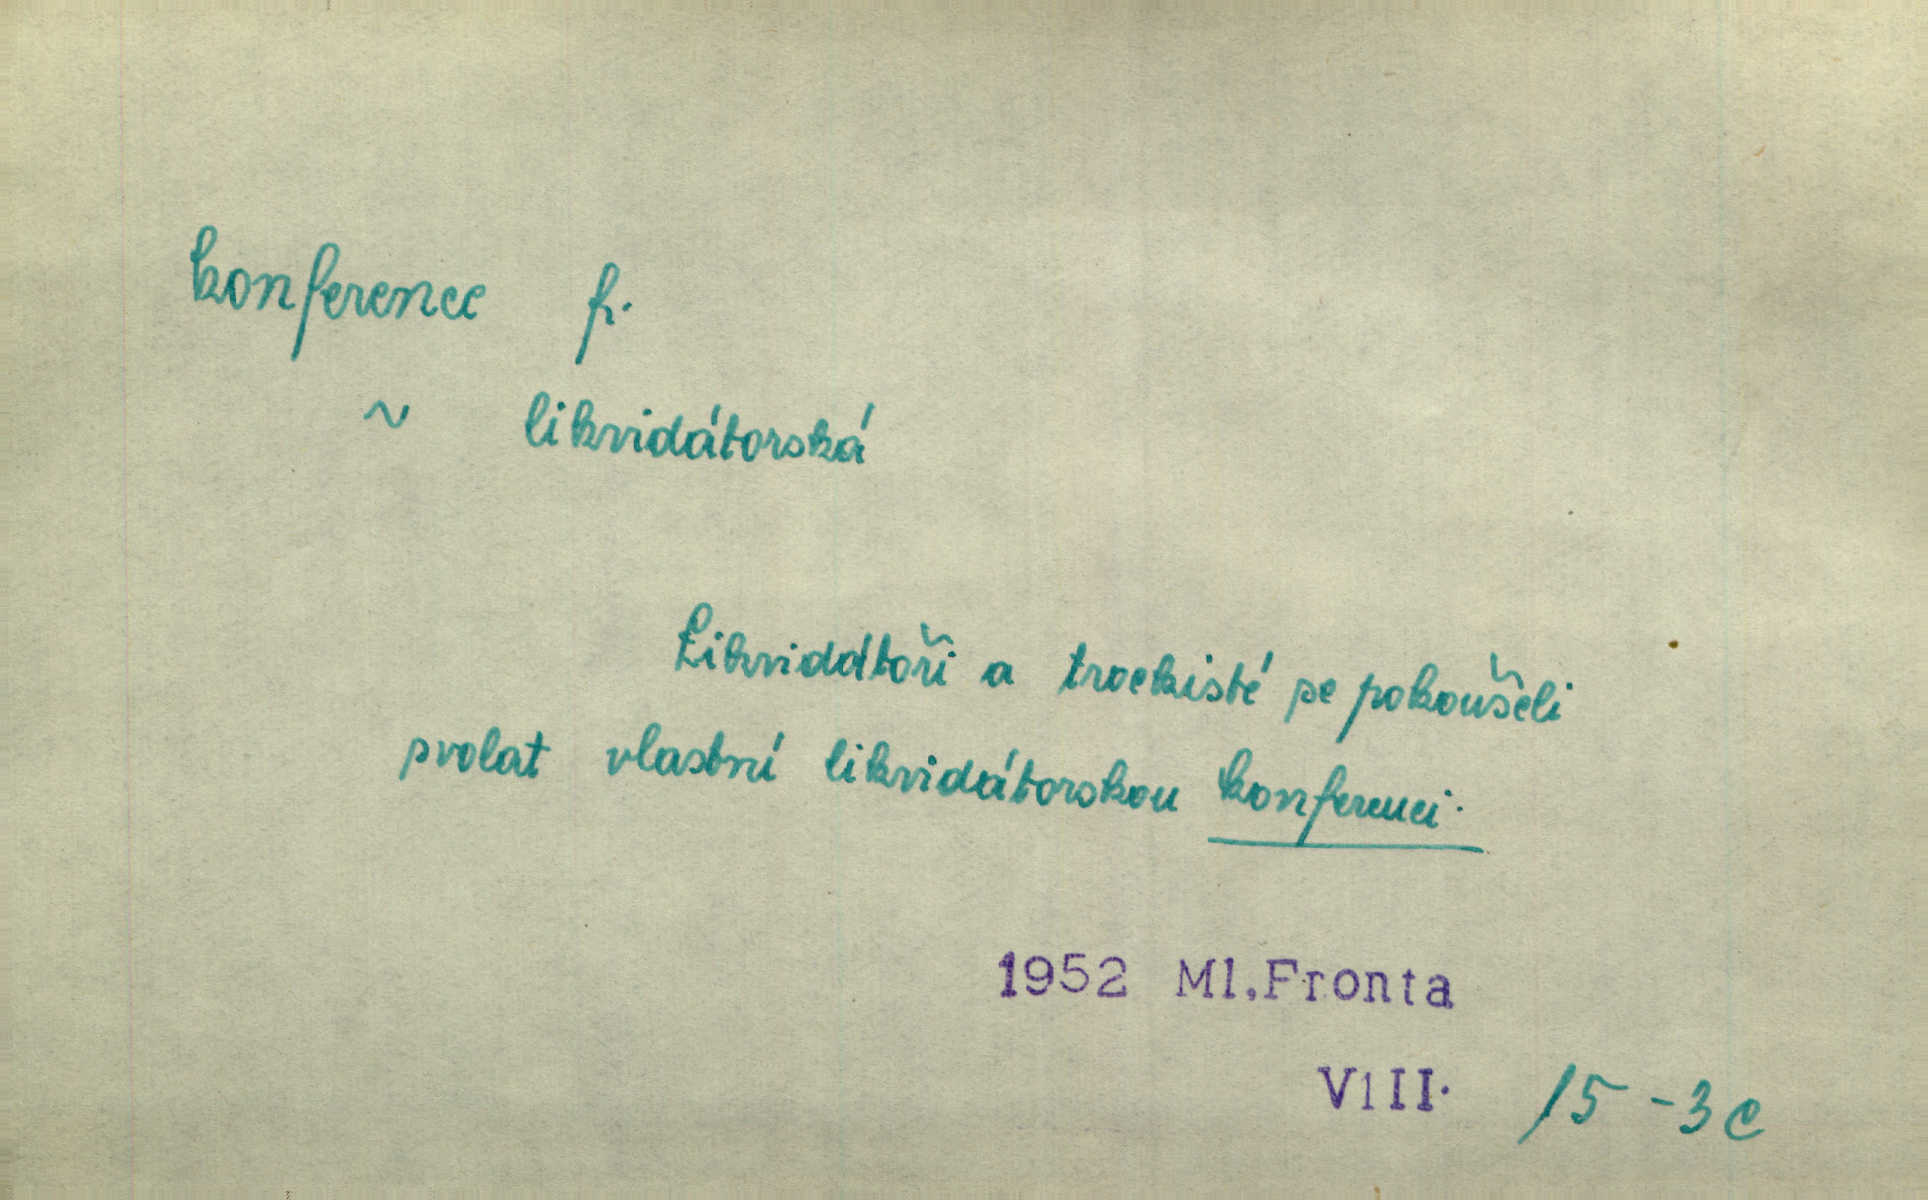 konference f.
~ likvidátorská
Likvidátoři a trockisté se pokoušeli
svolat vlastní likvidátorskou konferenci.
1952 Ml.Fronta
VIII. 15 - 3c